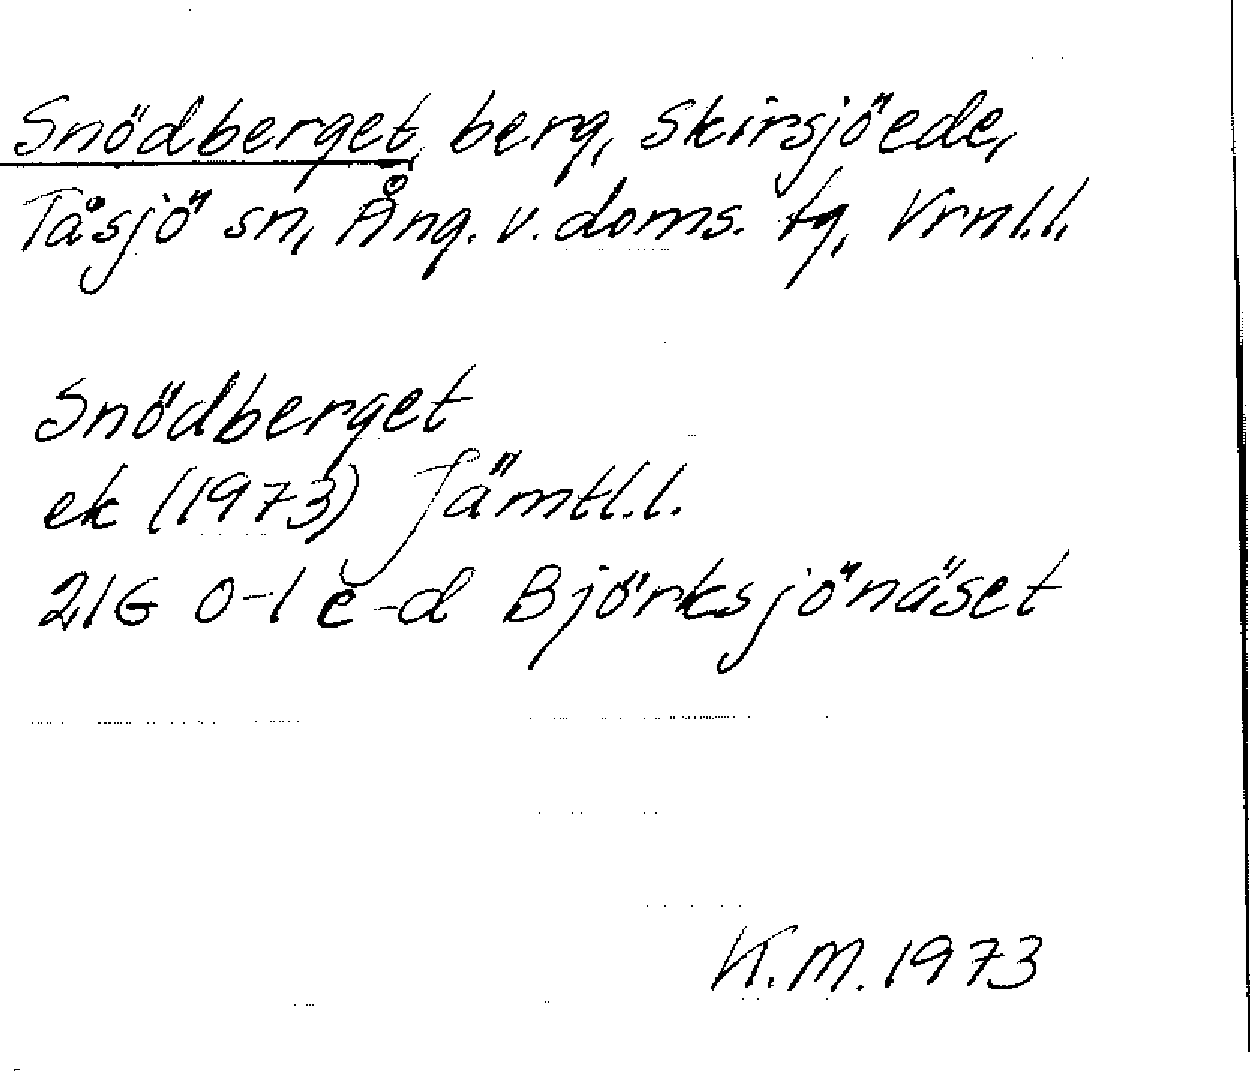 Snödberget, berg, Skirsjöede,
Tåsjö sn, Ång. v. doms. tg, Vrnl.l.
Snödberget
ek (1973) Jämtl.l.
21G 0-1 c-d Björksjönäset
K.M. 1973